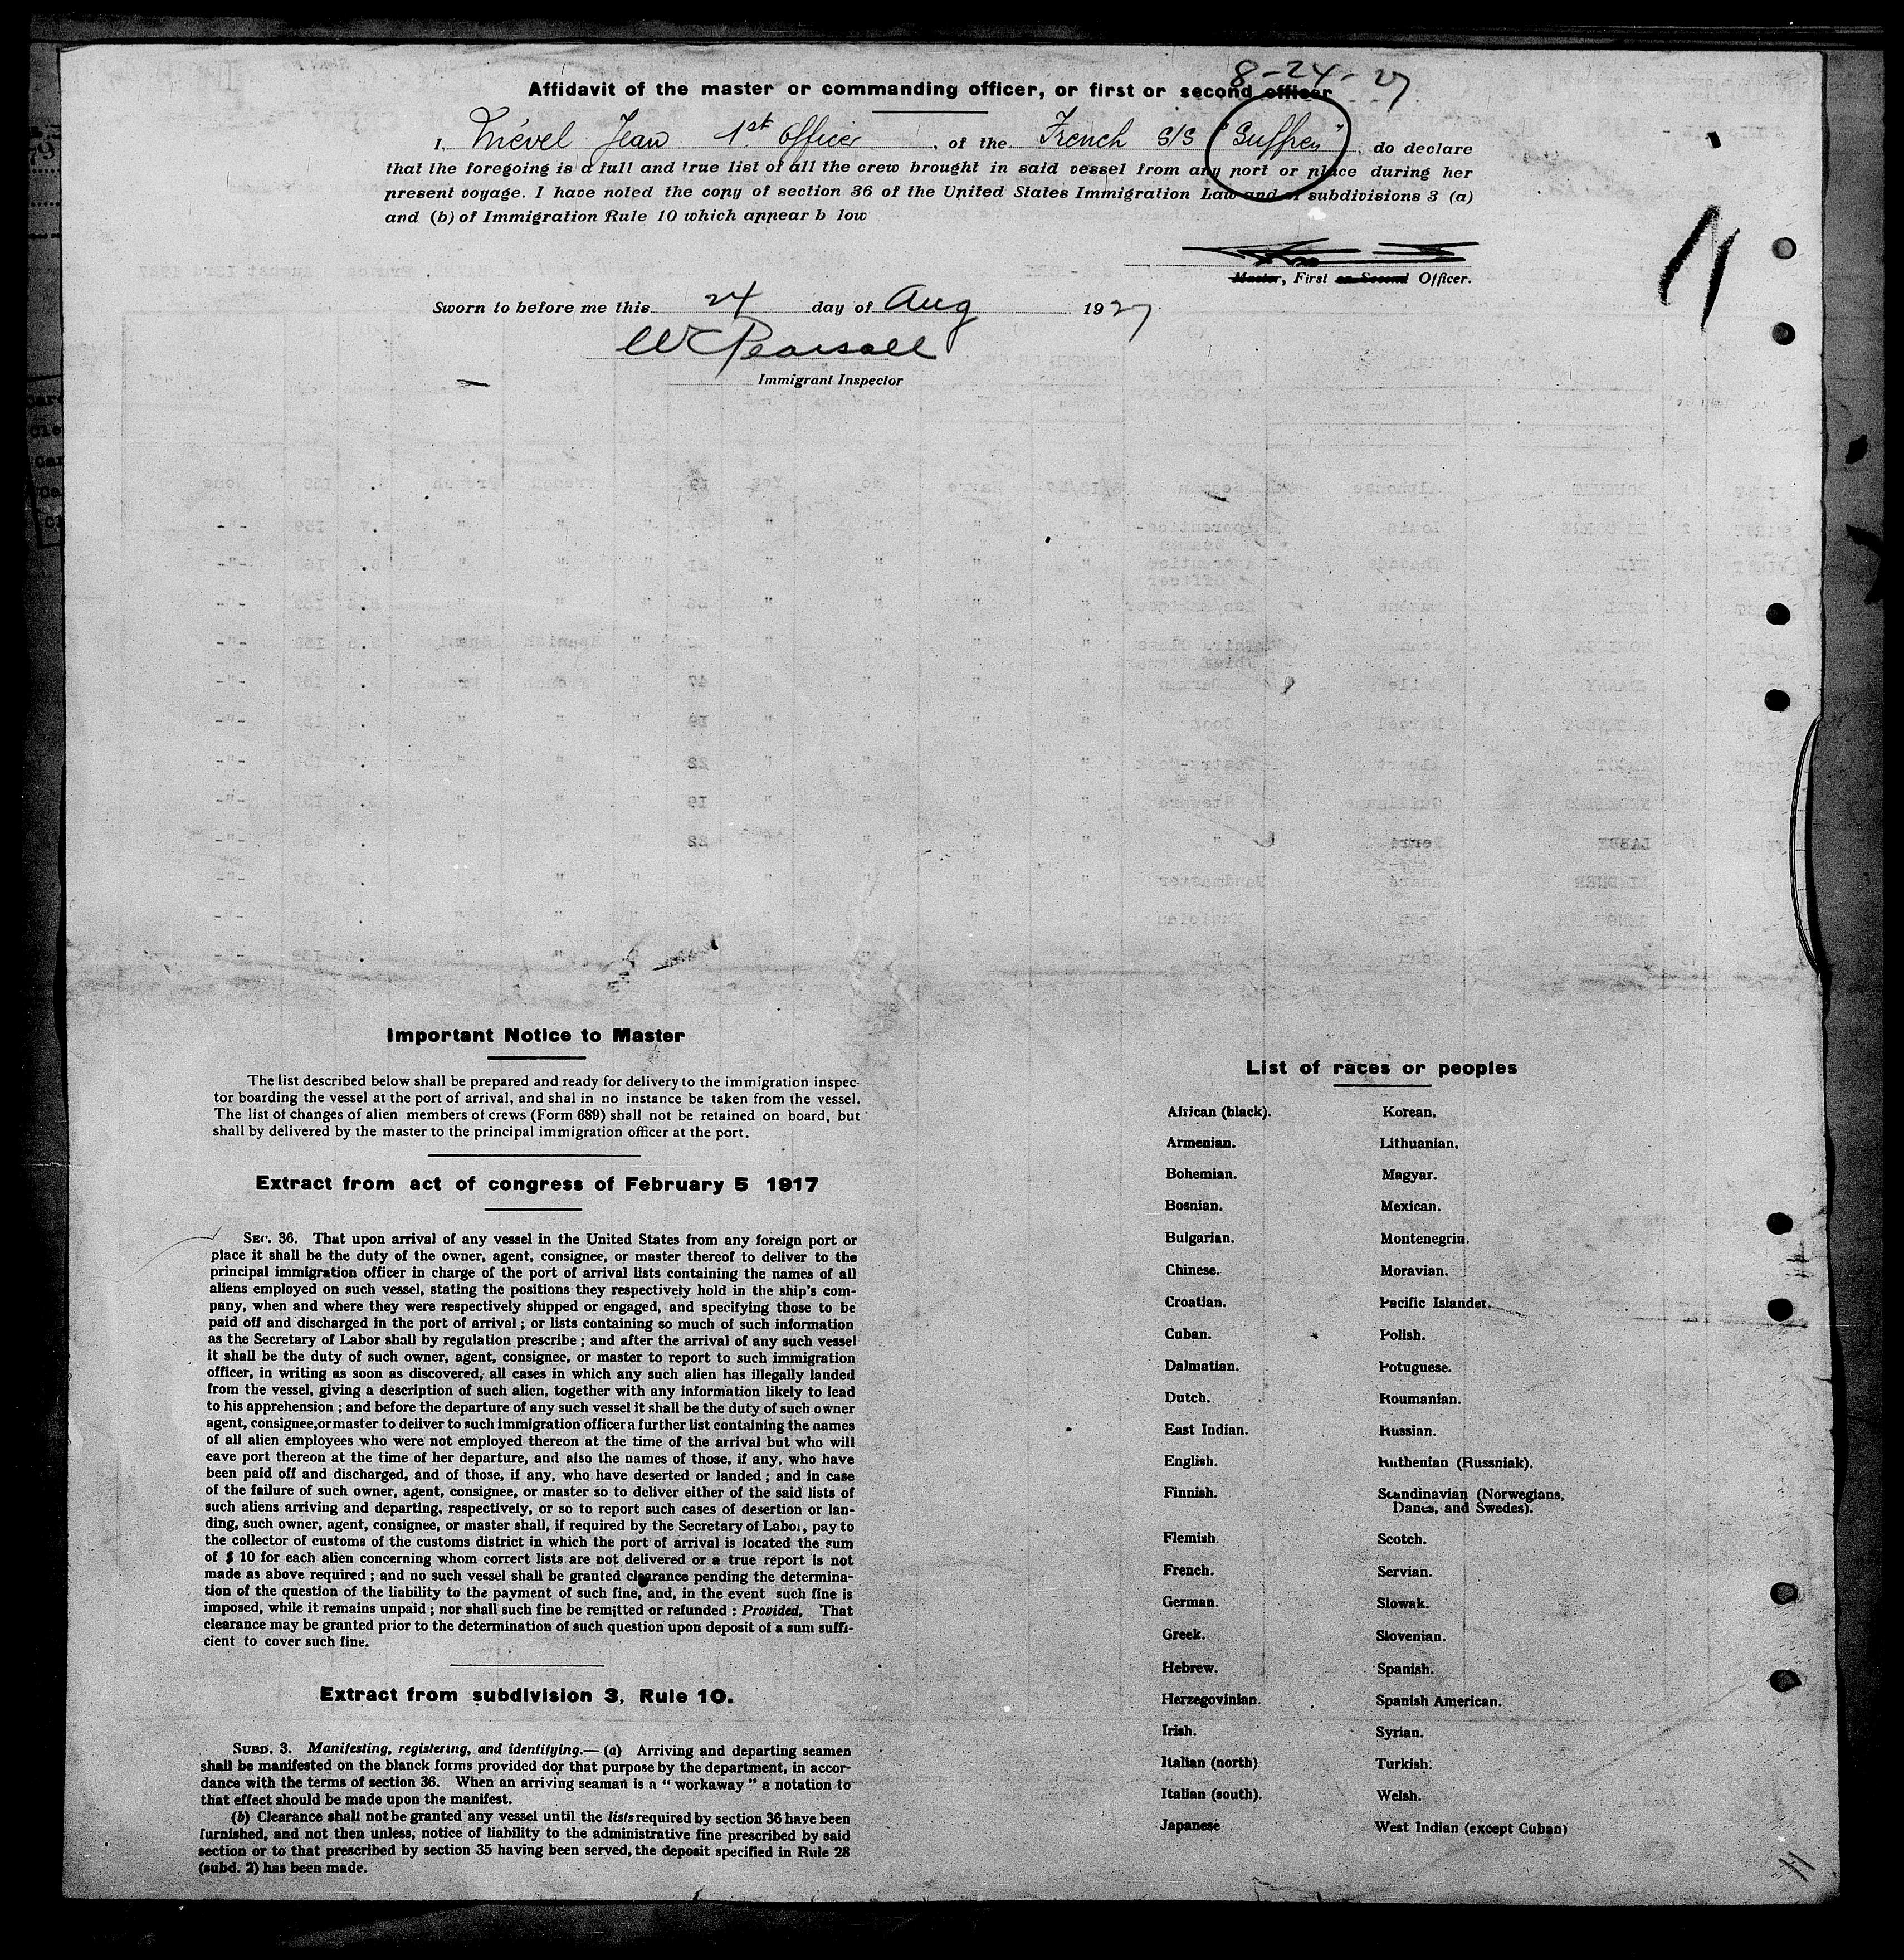 8-24-27
Affidavit of the master or commanding officer, or first or second officer
I, Mével Jean 1st Officer, of the French S/S "Suffren", do declare
that the foregoing is a full and true list of all the crew brought in said vessel from any port or place during her
present voyage. I have noted the copy of section 36 of the United States Immigration Law and of subdivisions 3 (a)
and (b) of Immigration Rule 10 which appear b low
Master, First or Second Officer.
Sworn to before me this 24 day of Aug 1927
WC Pearsall
Immigrant Inspector
Important Notice to Master
The list described below shall be prepared and ready for delivery to the immigration inspec-
tor boarding the vessel at the port of arrival, and shal in no instance be taken from the vessel.
The list of changes of alien members of crews (Form 689) shall not be retained on board, but
shall by delivered by the master to the principal immigration officer at the port.
Extract from act of congress of February 5 1917
SEC. 36. That upon arrival of any vessel in the United States from any foreign port or
place it shall be the duty of the owner, agent, consignee, or master thereof to deliver to the
principal immigration officer in charge of the port of arrival lists containing the names of all
aliens employed on such vessel, stating the positions they respectively hold in the ship's com-
pany, when and where they were respectively shipped or engaged, and specifying those to be
paid off and discharged in the port of arrival; or lists containing so much of such information
as the Secretary of Labor shall by regulation prescribe; and after the arrival of any such vessel
it shall be the duty of such owner, agent, consignee, or master to report to such immigration
officer, in writing as soon as discovered, all cases in which any such alien has illegally landed
from the vessel, giving a description of such alien, together with any information likely to lead
to his apprehension; and before the departure of any such vessel it shall be the duty of such owner
agent, consignee, or master to deliver to such immigration officer a further list containing the names
of all alien employees who were not employed thereon at the time of the arrival but who will
eave port thereon at the time of her departure, and also the names of those, if any, who have
been paid off and discharged, and of those, if any, who have deserted or landed; and in case
of the failure of such owner, agent, consignee, or master so to deliver either of the said lists of
such aliens arriving and departing, respectively, or so to report such cases of desertion or lan-
ding, such owner, agent, consignee, or master shall, if required by the Secretary of Labor, pay to
the collector of customs of the customs district in which the port of arrival is located the sum
of $ 10 for each alien concerning whom correct lists are not delivered or a true report is not
made as above required; and no such vessel shall be granted clearance pending the determina-
tion of the question of the liability to the payment of such fine, and, in the event such fine is
imposed, while it remains unpaid; nor shall such fine be remitted or refunded: Provided, That
clearance may be granted prior to the determination of such question upon deposit of a sum suffi-
cient to cover such fine.
Extract from subdivision 3, Rule 10.
SUBD. 3. Manifesting, registering, and identifying.— (a) Arriving and departing seamen
shall be manifested on the blanck forms provided dor that purpose by the department, in accor-
dance with the terms of section 36. When an arriving seaman is a "workaway" a notation to
that effect should be made upon the manifest.
(b) Clearance shall not be granted any vessel until the lists required by section 36 have been
furnished, and not then unless, notice of liability to the administrative fine prescribed by said
section or to that prescribed by section 35 having been served, the deposit specified in Rule 28
(subd. 2) has been made.
List of races or peoples
African (black).
Armenian.
Bohemian.
Bosnian.
Bulgarian.
Chinese.
Croatian.
Cuban.
Dalmatian.
Dutch.
East Indian.
English.
Finnish.
Flemish.
French.
German.
Greek.
Hebrew.
Herzegovinian.
Irish.
Italian (north)
Italian (south).
Japanese
Korean.
Lithuanian.
Magyar.
Mexican.
Montenegrin.
Moravian.
Pacific Islander.
Polish.
Potuguese.
Roumanian.
Russian.
Ruthenian (Russniak).
Scandinavian (Norwegians,
Danes, and Swedes).
Scotch.
Servian.
Slowak.
Slovenian.
Spanish.
Spanish American.
Syrian.
Turkish.
Welsh.
West Indian (except Cuban)
11